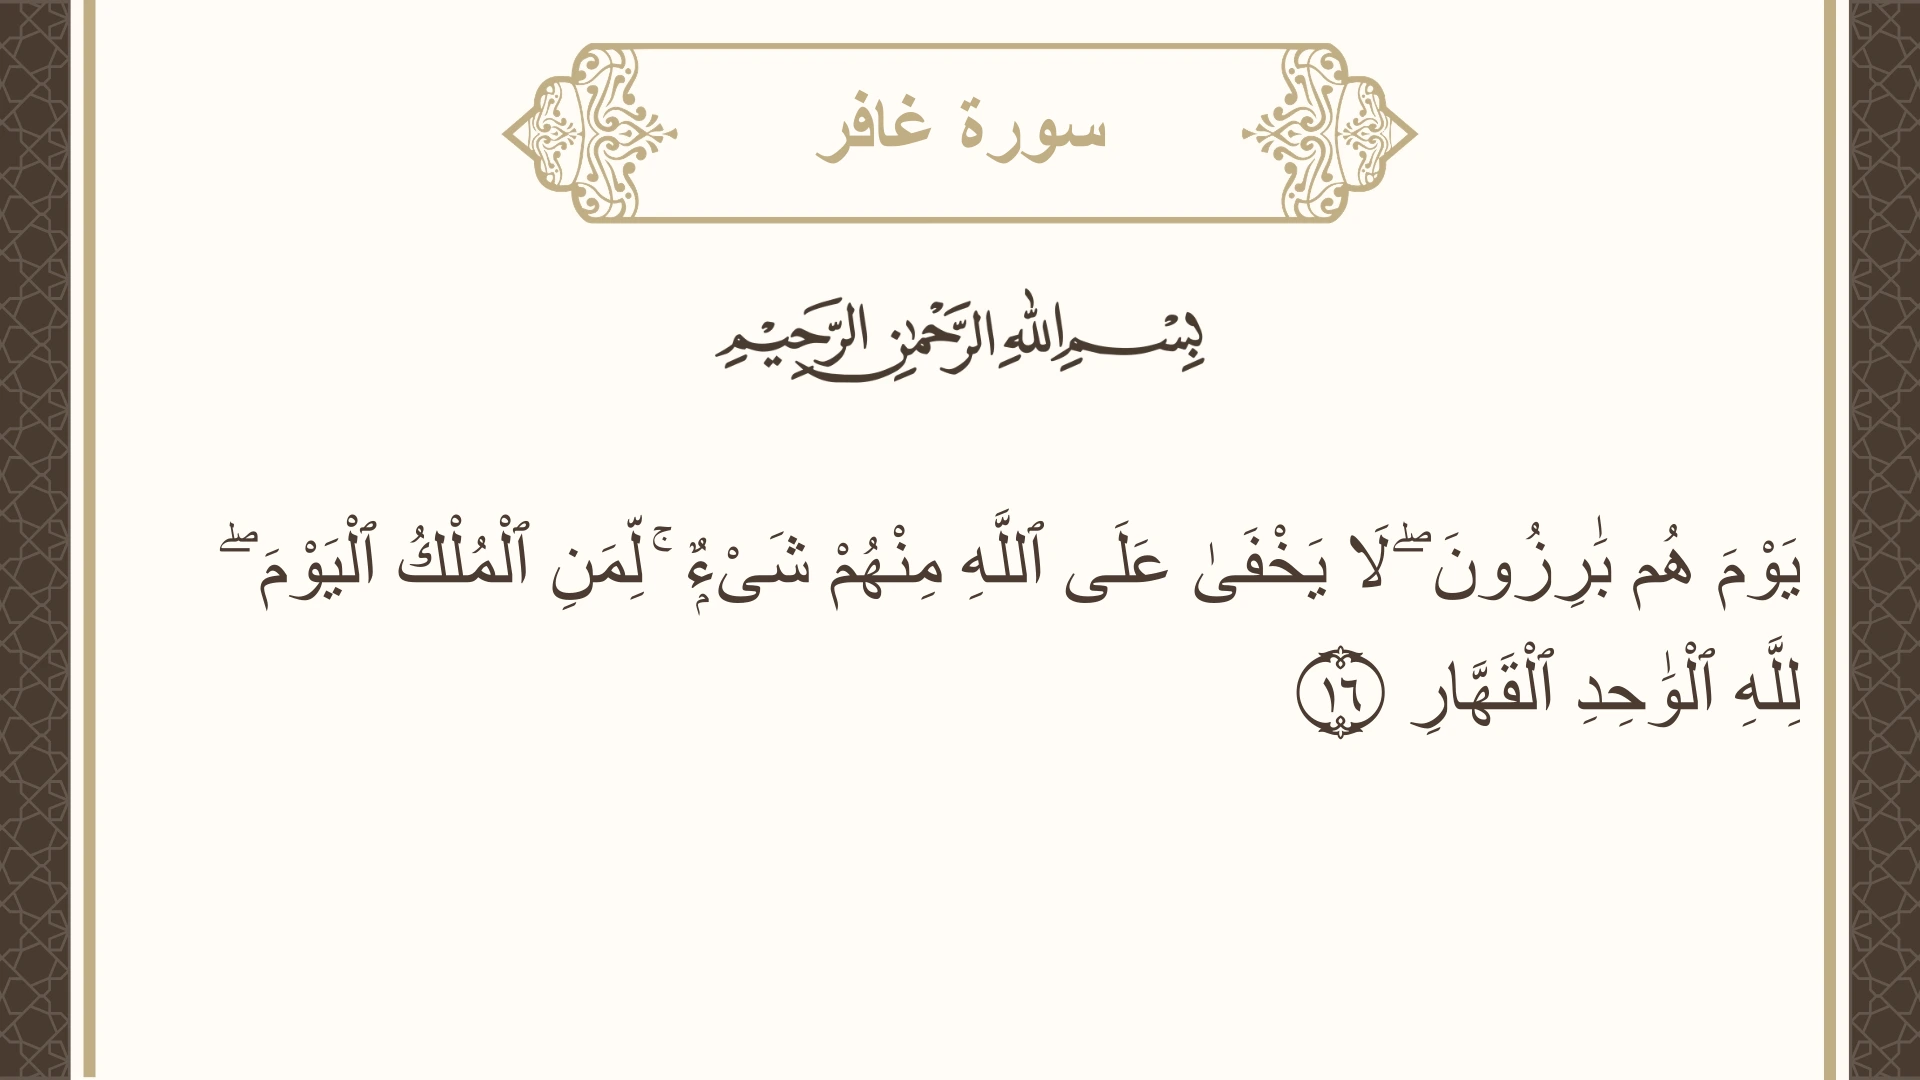 سورة غافر
بِسْمِ اللهِ الرَّحْمٰنِ الرَّحِيْمِ
يَوْمَ هُم بَٰرِزُونَ ۖ لَا يَخْفَىٰ عَلَى ٱللَّهِ مِنْهُمْ شَىْءٌۭ ۚ لِّمَنِ ٱلْمُلْكُ ٱلْيَوْمَ ۖ
لِلَّهِ ٱلْوَٰحِدِ ٱلْقَهَّارِ ١٦